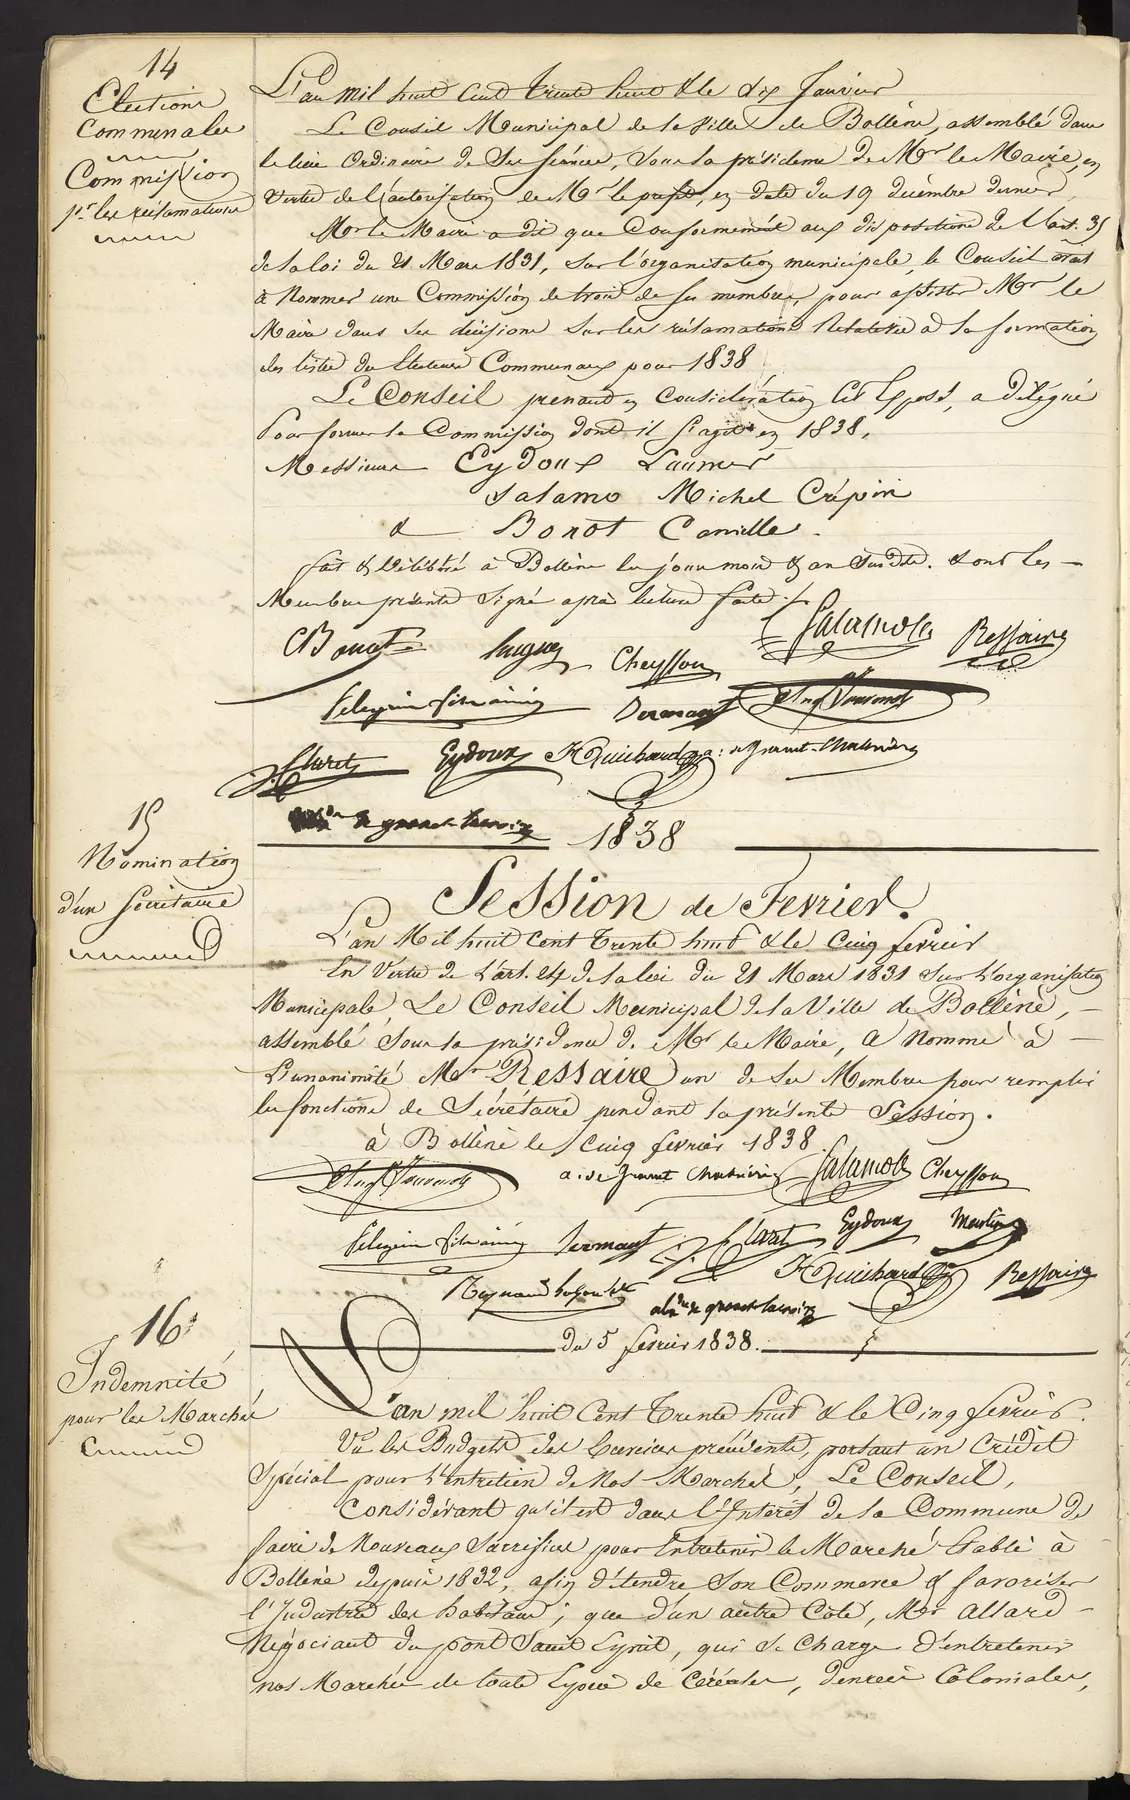 14
Elections
Communales
Commission
pr. les réclamations
L'an mil huit cent trente huit & le dix Janvier
Le Conseil Municipal de la ville de Bollène, assemblé dans
le lieu Ordinaire de ses séances, sous la présidence de Mr le Maire, en
vertu de l'autorisation de Mr le préfet, en date du 19 décembre dernier,
Mr le Maire a dit que Conformément aux dispositions de l'art. 35
de la loi du 21 Mars 1831, sur l'organisation municipale, le Conseil était
à Nommer une Commission de trois de ses membres, pour assister Mr le
Maire dans ses décisions sur les réclamations Relatives à la formation
des listes des Electeurs Communaux pour 1838
Le Conseil prenant en Considération cet Exposé, a délégué
Pour former la Commission dont il s'agit en 1838,
Messieurs Eydoux Laumer
Salamo Michel Crépin
& Bonot Camille.
fait & Délibéré à Bollène les jour mois & an Susdits. & ont les
Membres présents Signé après lecture faite.
CBonot Hugues Cheysson Salamolle Ressaire
Pelegrin fils ainé Dermant
J. Claret Eydoux HGuichard a: de Granet-
de granet lacroix
1838
15
Nomination
d'un Secrétaire
Session de Fevrier.
L'an Mil huit cent trente huit & le Cinq fevrier
En Vertu de l'art. 24 de la loi du 21 Mars 1831 sur l'organisation
Municipale, Le Conseil Municipal de la Ville de Bollène,
assemblé sous la présidence de Mr le Maire, a Nommé à
L'unanimité Mr Ressaire un de ses Membres pour remplir
les fonctions de Sécrétaire pendant la présente Session.
à Bollène le Cinq fevrier 1838
a: de Granet Salamolle Cheysson
Pelegrin fils ainé Dermant J. Claret Eydoux Martin
Reynaud HGuichard Ressaire
de granet lacroix
du 5 fevrier 1838.
16
Indemnité
pour les Marchés
L'an mil huit Cent Trente huit & le Cinq fevrier.
Vu les Budgets des Exercices précédents, portant un Crédit
Spécial pour l'entretien de Nos Marchés, Le Conseil,
Considérant qu'il est dans l'Intérêt de la Commune de
faire de Nouveaux Sacrifices pour Entretenir le Marché Etabli à
Bollène depuis 1832, afin d'étendre son Commerce & favoriser
l'Industrie des habitans; que d'un autre Coté, Mr Allard
Négociant du pont Saint Esprit, qui se Charge d'entretenir
nos Marchés de toute Espèce de Céréales, denrées Coloniales,